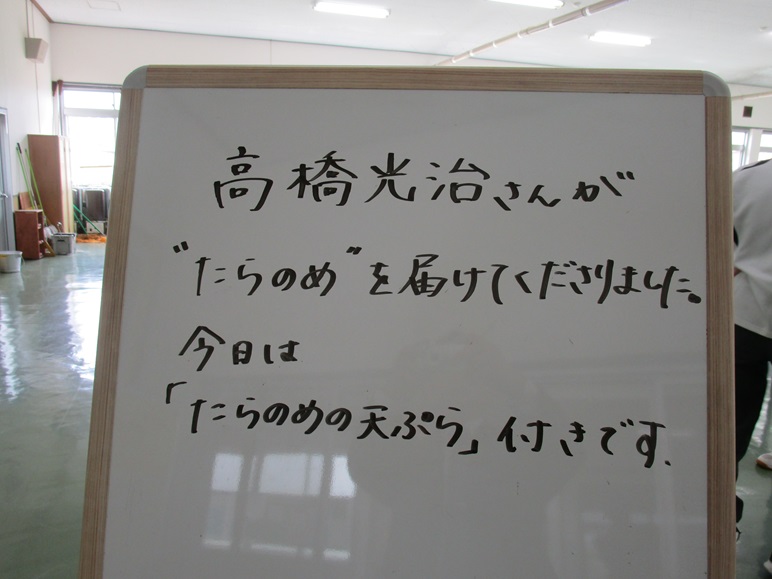 高橋光治さんが
"たらのめ"を届けてくださりました。
今日は
「たらのめの天ぷら」付きです.